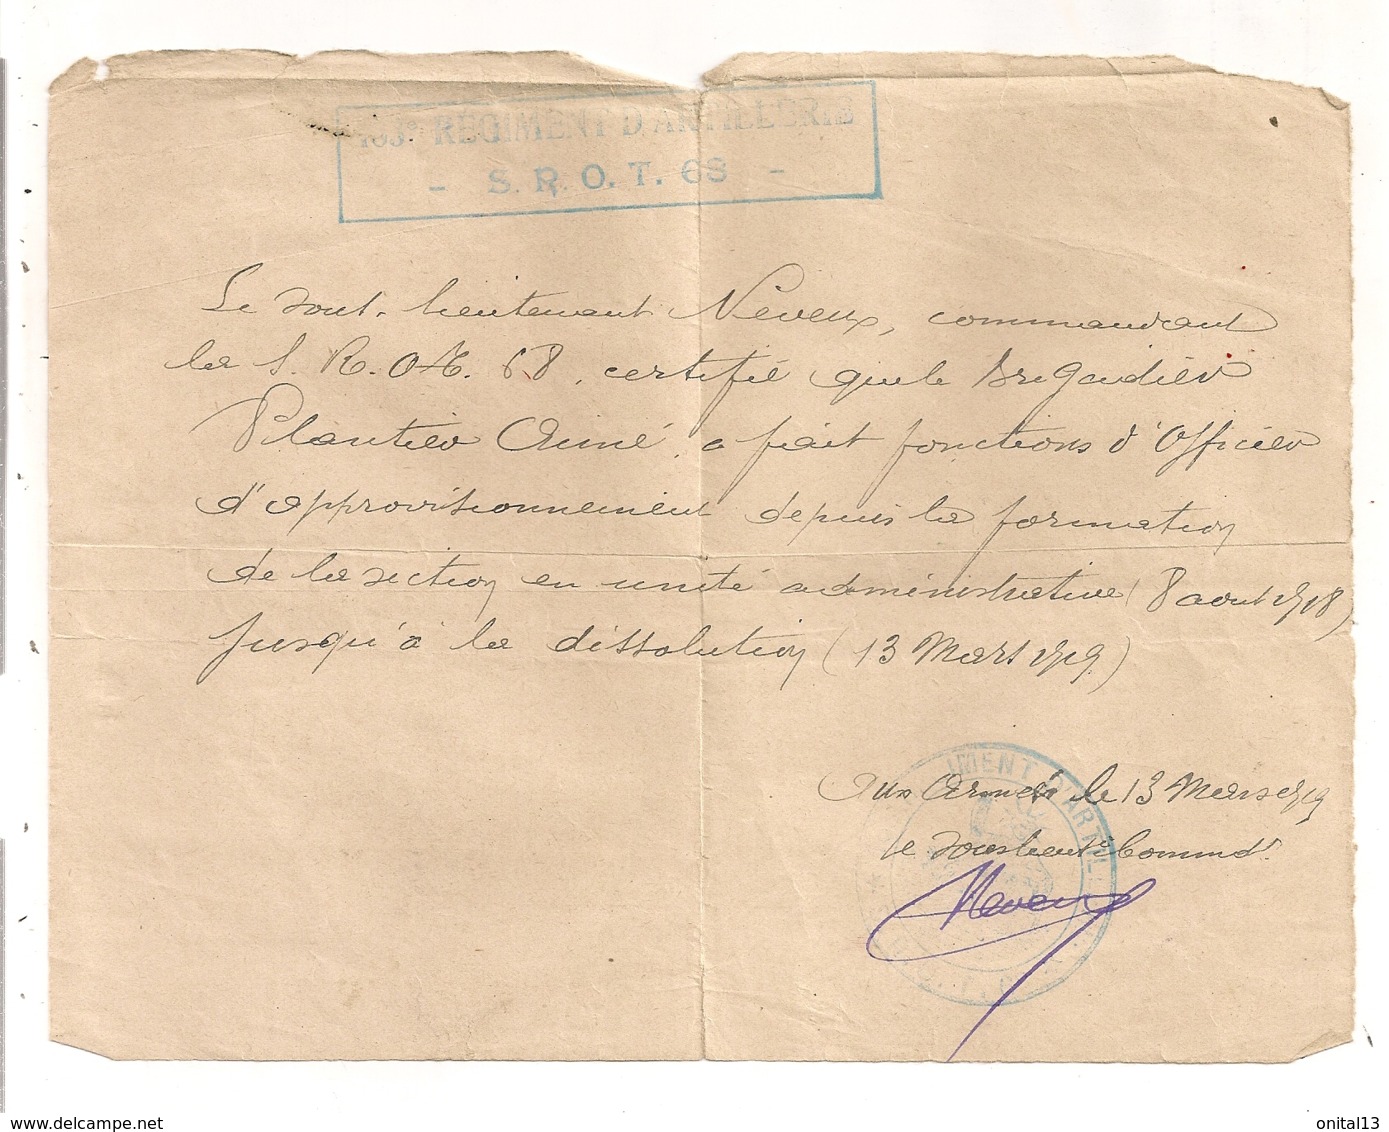 REGIMENT D'ARTILLERIE
- S. R. O. T. 68 -
Le sous-lieutenant Neveux, commandant
la S. R. O. T. 68, certifie que le Brigadier
Plantier Aimé, a fait fonctions d'Officier
d'approvisionnement depuis la formation
de la section en unité administrative (8 août 1918)
jusqu'à la dissolution (13 Mars 1919)
Aux Armées le 13 Mars 1919
le sous lieut. Commd.
Neveux
IMENT D'ARTIL
www.delcampe.net
onital13